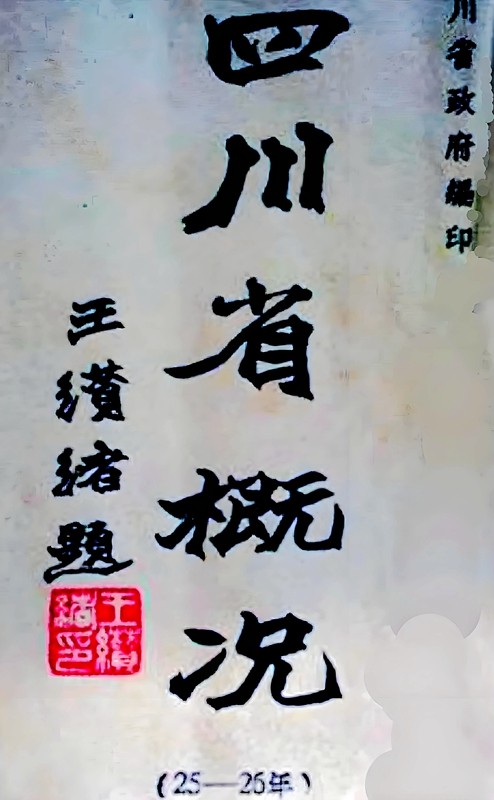 川省政府編印
四川省概況
王纘緒題
王纘緒印
(25—26年)